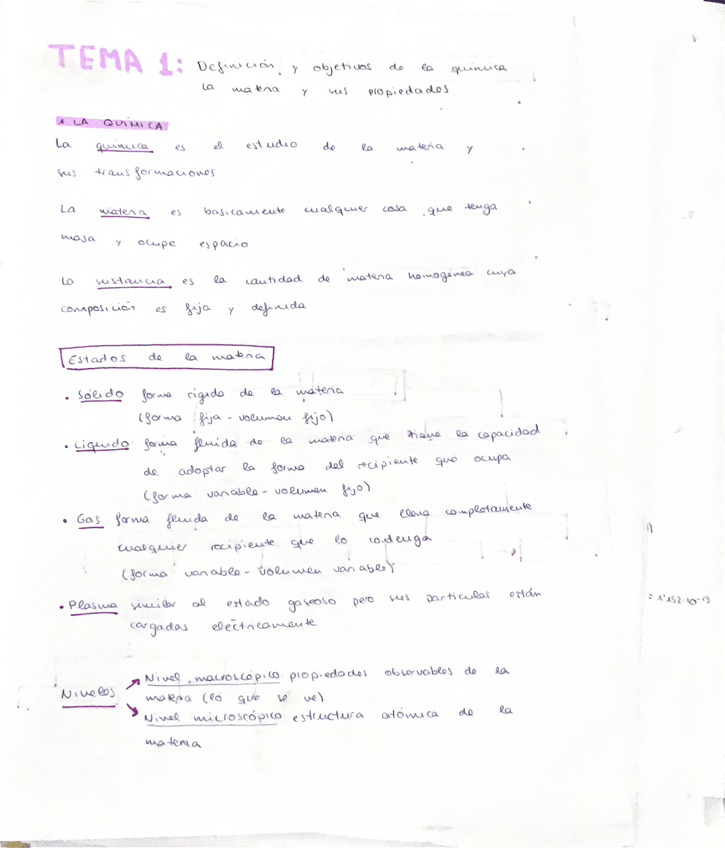 TEMA 1: Definición y objetivos de la química
La materia y sus propiedades
1 LA QUÍMICA
La química es el estudio de la materia y
sus transformaciones
La materia es basicamente cualquier cosa que tenga
masa y ocupe espacio
La sustancia es la cantidad de materia homogénea cuya
composición es fija y definida
Estados de la materia
• Sólido forma rígida de la materia
(forma fija - volumen fijo)
• Líquido forma fluida de la materia que tiene la capacidad
de adoptar la forma del recipiente que ocupa
(forma variable - volumen fijo)
• Gas forma fluida de la materia que llena completamente
cualquier recipiente que lo contenga
(forma variable - volumen variable)
• Plasma similar al estado gaseoso pero sus partículas están
cargadas eléctricamente
Niveles
Nivel macroscópico propiedades observables de la
materia (lo que se ve)
Nivel microscópico estructura atómica de la
materia
= 1'152·10-13